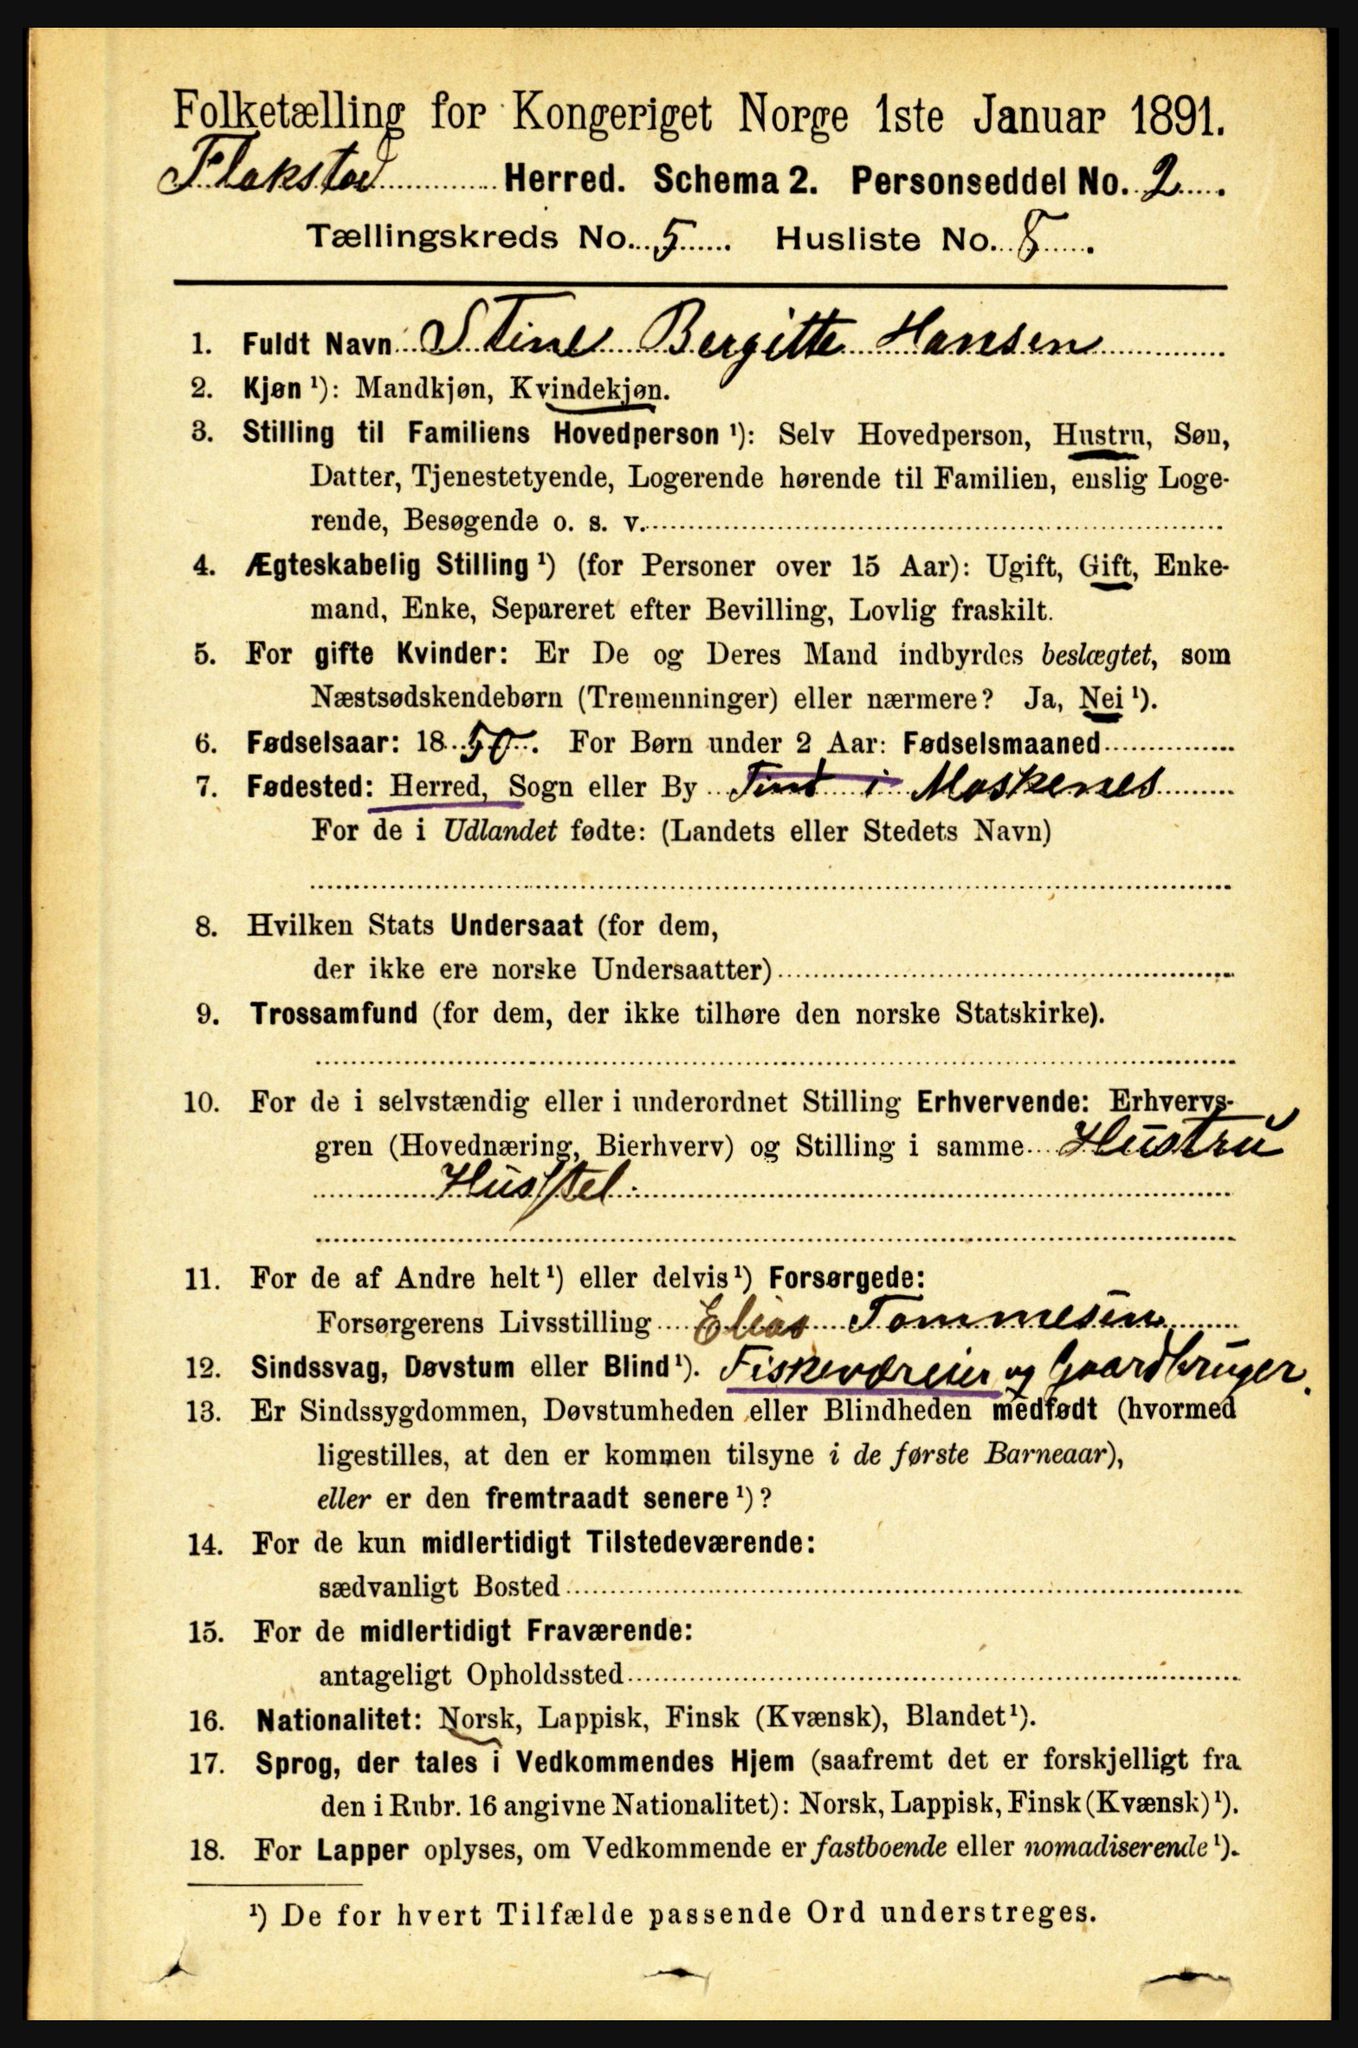 Folketælling for Kongeriget Norge 1ste Januar 1891.
Flakstad Herred. Schema 2. Personseddel No. 2.
Tællingskreds No. 5. Husliste No. 8.
1. Fuldt Navn Stine Bergitte Hansen
2. Kjøn ¹): Mandkjøn, Kvindekjøn.
3. Stilling til Familiens Hovedperson ¹): Selv Hovedperson, Hustru, Søn,
Datter, Tjenestetyende, Logerende hørende til Familien, enslig Loge-
rende, Besøgende o. s. v.
4. Ægteskabelig Stilling ¹) (for Personer over 15 Aar): Ugift, Gift, Enke-
mand, Enke, Separeret efter Bevilling, Lovlig fraskilt.
5. For gifte Kvinder: Er De og Deres Mand indbyrdes beslægtet, som
Næstsødskendebørn (Tremenninger) eller nærmere? Ja, Nei ¹).
6. Fødselsaar: 1850. For Børn under 2 Aar: Fødselsmaaned
7. Fødested: Herred, Sogn eller By Tind i Moskenes
For de i Udlandet fødte: (Landets eller Stedets Navn)
8. Hvilken Stats Undersaat (for dem,
der ikke ere norske Undersaatter)
9. Trossamfund (for dem, der ikke tilhøre den norske Statskirke).
10. For de i selvstændig eller i underordnet Stilling Erhvervende: Erhvervs-
gren (Hovednæring, Bierhverv) og Stilling i samme Hustru
Husstel.
11. For de af Andre helt ¹) eller delvis ¹) Forsørgede:
Forsørgerens Livsstilling Elias Tommesen
12. Sindssvag, Døvstum eller Blind ¹). Fiskeværeier og Gaardbruger.
13. Er Sindssygdommen, Døvstumheden eller Blindheden medfødt (hvormed
ligestilles, at den er kommen tilsyne i de første Barneaar),
eller er den fremtraadt senere ¹)?
14. For de kun midlertidigt Tilstedeværende:
sædvanligt Bosted
15. For de midlertidigt Fraværende:
antageligt Opholdssted
16. Nationalitet: Norsk, Lappisk, Finsk (Kvænsk), Blandet ¹).
17. Sprog, der tales i Vedkommendes Hjem (saafremt det er forskjelligt fra
den i Rubr. 16 angivne Nationalitet): Norsk, Lappisk, Finsk (Kvænsk) ¹).
18. For Lapper oplyses, om Vedkommende er fastboende eller nomadiserende ¹).
¹) De for hvert Tilfælde passende Ord understreges.